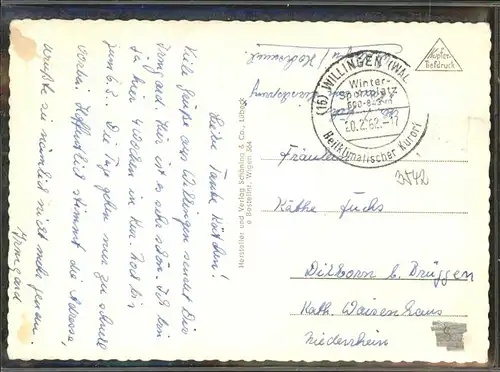 Liebe Tante Käthen!
Viele Grüße aus Willingen sendet Dir
Irmgard. Hier ist es sehr schön. Ich bin
ja hier 4 Wochen in Kur. Noch bis
zum 6.3. Die Tage gehen nur zu schnell
vorbei. Hoffentlich stimmt die Adresse,
wußte sie nämlich nicht mehr genau.
Irmgard
Hersteller und Verlag Schöning & Co., Lübeck
(16) WILLINGEN (WAL
Winter-
Sportplatz
20.2.62.-17
Heilklimatischer Kurort
Kupfer-
Tiefdruck
Fräulein
Käthe Fuchs
Dilborn b. Brüggen
Kath. Waisenhaus
Niederrhein